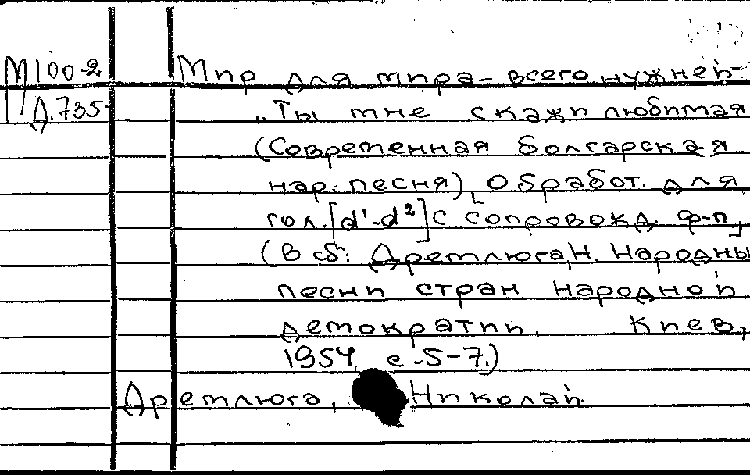 М100-2 Мир для мира - всего нужней-
Д.735 „Ты мне скажи любимая
(Современная болгарская
нар. песня), [Обработ. для
гол. [d¹-d²] с сопровожд. ф-п]
(В сб: Дремлюга, Н. Народны
песни стран народной
демократии. Киев,
1954, с.5-7.)
Дремлюга, Николай.